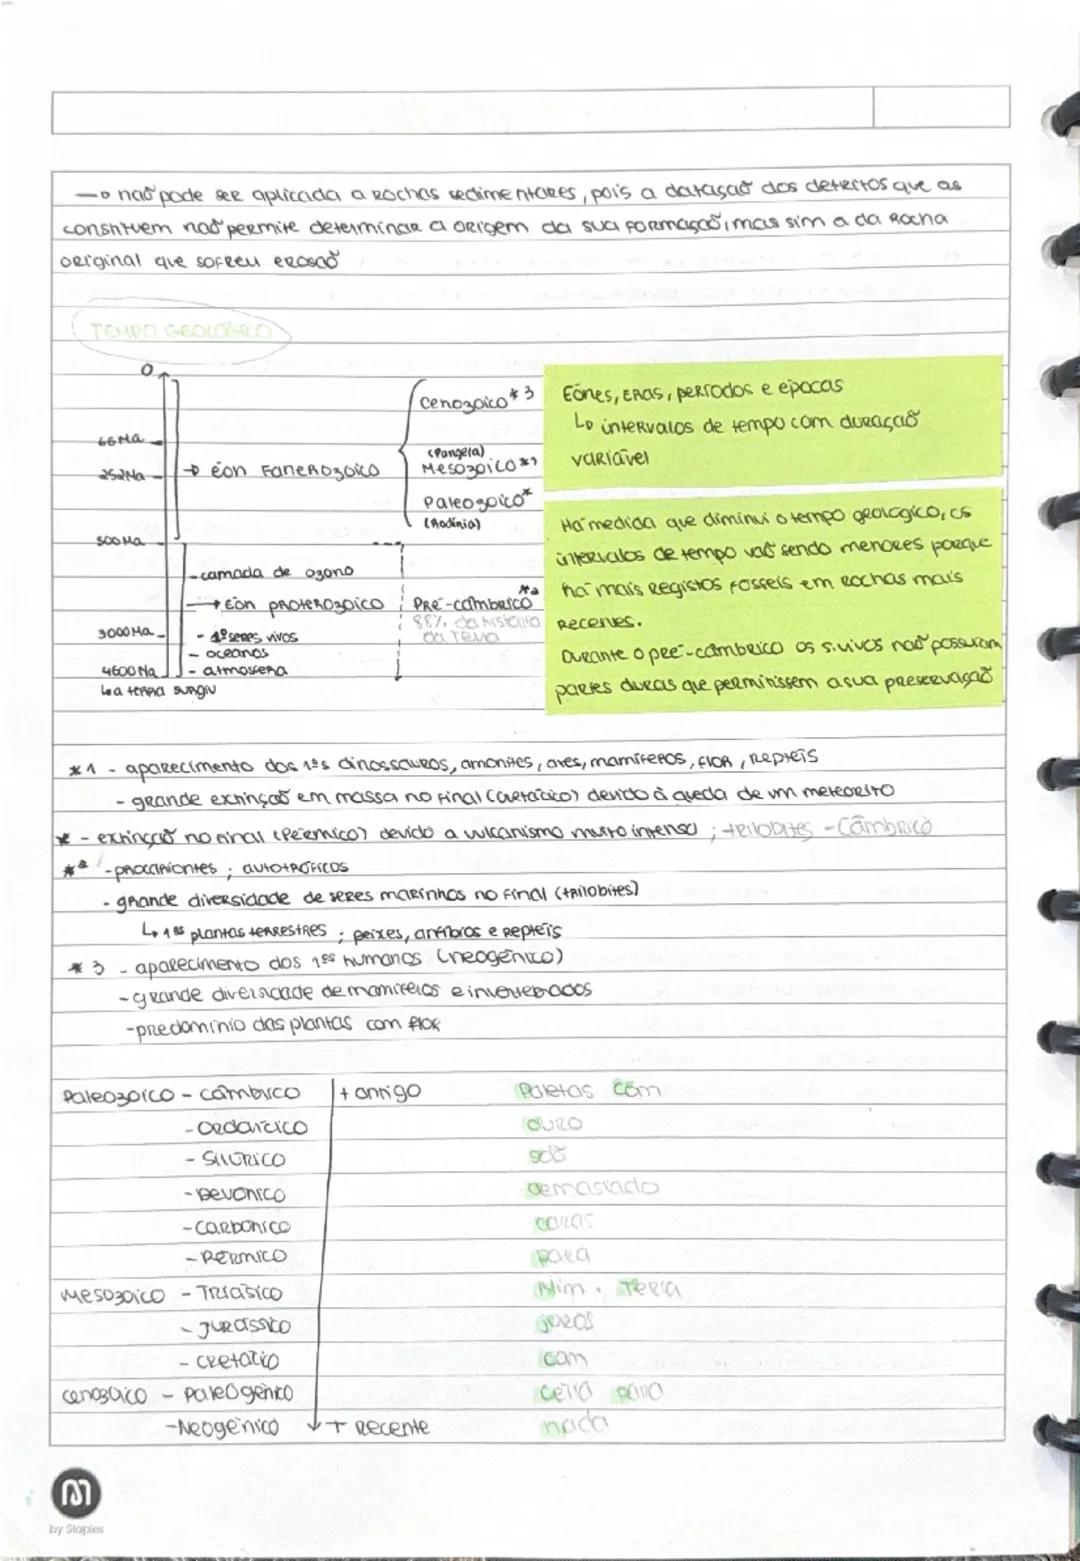 → não pode ser aplicada a rochas sedimentares, pois a datação dos detritos que as
constituem não permite determinar a origem da sua formação, mas sim a da rocha
original que sofreu erosão
TEMPO GEOLÓGICO
0
66 Ma
252 Ma
500 Ma
3000 Ma
4600 Ma
↳ a terra surgiu
→ éon Fanerozoico
Cenozoico *3
(Pangeia)
Mesozoico *1
Paleozoico *
(Rodínia)
- camada de ozono
→ Éon proterozoico
- 1º seres vivos
- oceanos
- atmosfera
Pré-câmbrico *2
88% da história
da Terra
Eónes, Eras, períodos e épocas
↳ intervalos de tempo com duração
variável
Há medida que diminui o tempo geológico, os
intervalos de tempo vão sendo menores porque
há mais registos fósseis em rochas mais
recentes.
Durante o pré-câmbrico os s.vivos não possuíam
partes duras que permitissem a sua preservação
*1 - aparecimento dos 1ºs dinossauros, amonites, aves, mamíferos, flor, répteis
- grande extinção em massa no final (cretácico) devido à queda de um meteorito
* - extinção no final (Pérmico) devido a vulcanismo muito intenso ; trilobites - Câmbrico
*2 - procariontes ; autotróficos
- grande diversidade de seres marinhos no final (trilobites)
↳ 1as plantas terrestres ; peixes, anfíbios e répteis
*3 - aparecimento dos 1ºs humanos (neogénico)
- grande diversidade de mamíferos e invertebrados
- predomínio das plantas com flor
Paleozoico - câmbrico + antigo Paletas com
- Ordovícico ouro
- Silúrico são
- Devónico demasiado
- Carbónico caras
- Pérmico para
Mesozoico - Triásico Mim. Terra
- Jurássico juros
- Cretácio com
Cenozoico - Paleogénico certa para
- Neogénico + recente nada
by Staples